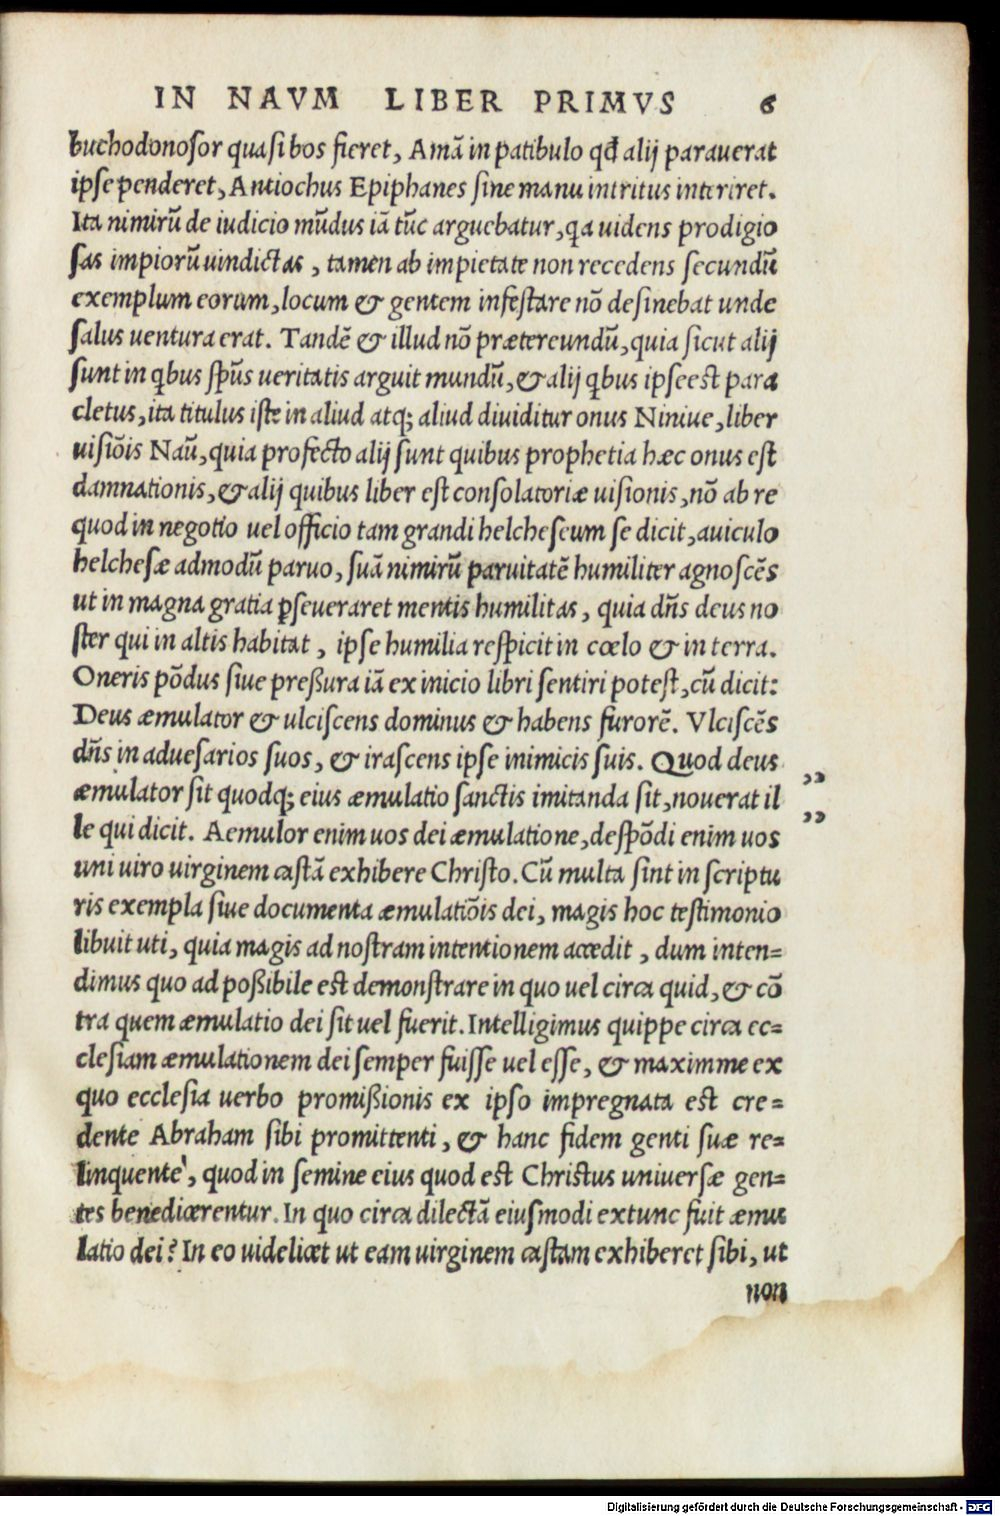 IN NAVM LIBER PRIMVS 6
buchodonosor quasi bos fieret, Amā in patibulo qđ alij parauerat
ipse penderet, Antiochus Epiphanes sine manu intritus interiret.
Ita nimirū de iudicio mūdus iā tūc arguebatur, qa uidens prodigio
sas impiorū uindictas, tamen ab impietate non recedens secundū
exemplum eorum, locum & gentem infestare nō desinebat unde
salus uentura erat. Tandē & illud nō prætereundū, quia sicut alij
sunt in qbus spūs ueritatis arguit mundū, & alij qbus ipse est para
cletus, ita titulus iste in aliud atq; aliud diuiditur onus Niniue, liber
uisiōis Naū, quia profecto alij sunt quibus prophetia hæc onus est
damnationis, & alij quibus liber est consolatoriæ uisionis, nō ab re
quod in negotio uel officio tam grandi helcheseum se dicit, a uiculo
helchesæ admodū paruo, suā nimirū paruitatē humiliter agnoscēs
ut in magna gratia pseueraret mentis humilitas, quia dñs deus no
ster qui in altis habitat, ipse humilia respicit in cœlo & in terra.
Oneris pōdus siue preßura iā ex inicio libri sentiri potest, cū dicit:
Deus æmulator & ulciscens dominus & habens furorē. Vlciscēs
dñs in aduesarios suos, & irascens ipse inimicis suis. Quod deus
æmulator sit quodq; eius æmulatio sanctis imitanda sit, nouerat il ,,
le qui dicit. Aemulor enim uos dei æmulatione, despōdi enim uos ,,
uni uiro uirginem castā exhibere Christo. Cū multa sint in scriptu
ris exempla siue documenta æmulatiōis dei, magis hoc testimonio
libuit uti, quia magis ad nostram intentionem accedit, dum inten=
dimus quo ad poßibile est demonstrare in quo uel circa quid, & cō
tra quem æmulatio dei sit uel fuerit. Intelligimus quippe circa ec=
clesiam æmulationem dei semper fuisse uel esse, & maximme ex
quo ecclesia uerbo promißionis ex ipso impregnata est cre=
dente Abraham sibi promittenti, & hanc fidem genti suæ re=
linquente, quod in semine eius quod est Christus uniuersæ gen=
tes benedicerentur. In quo circa dilectā eiusmodi extunc fuit æmu
latio dei? In eo uidelicet ut eam uirginem castam exhiberet sibi, ut
non
Digitalisierung gefördert durch die Deutsche Forschungsgemeinschaft - DFG